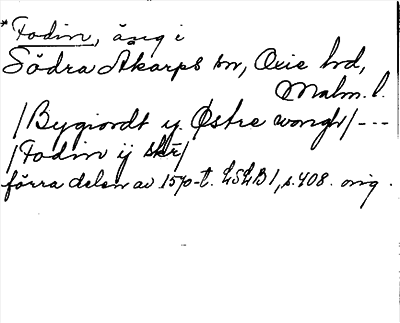 *Fodin, äng i
Södra Åkarps sn, Oxie hd,
Malm. l.
/Bygiordt ij Østre wongh/ ---
/Fodin ij skr/
förra delen av 1570-t. LSLB1, s. 408. orig.